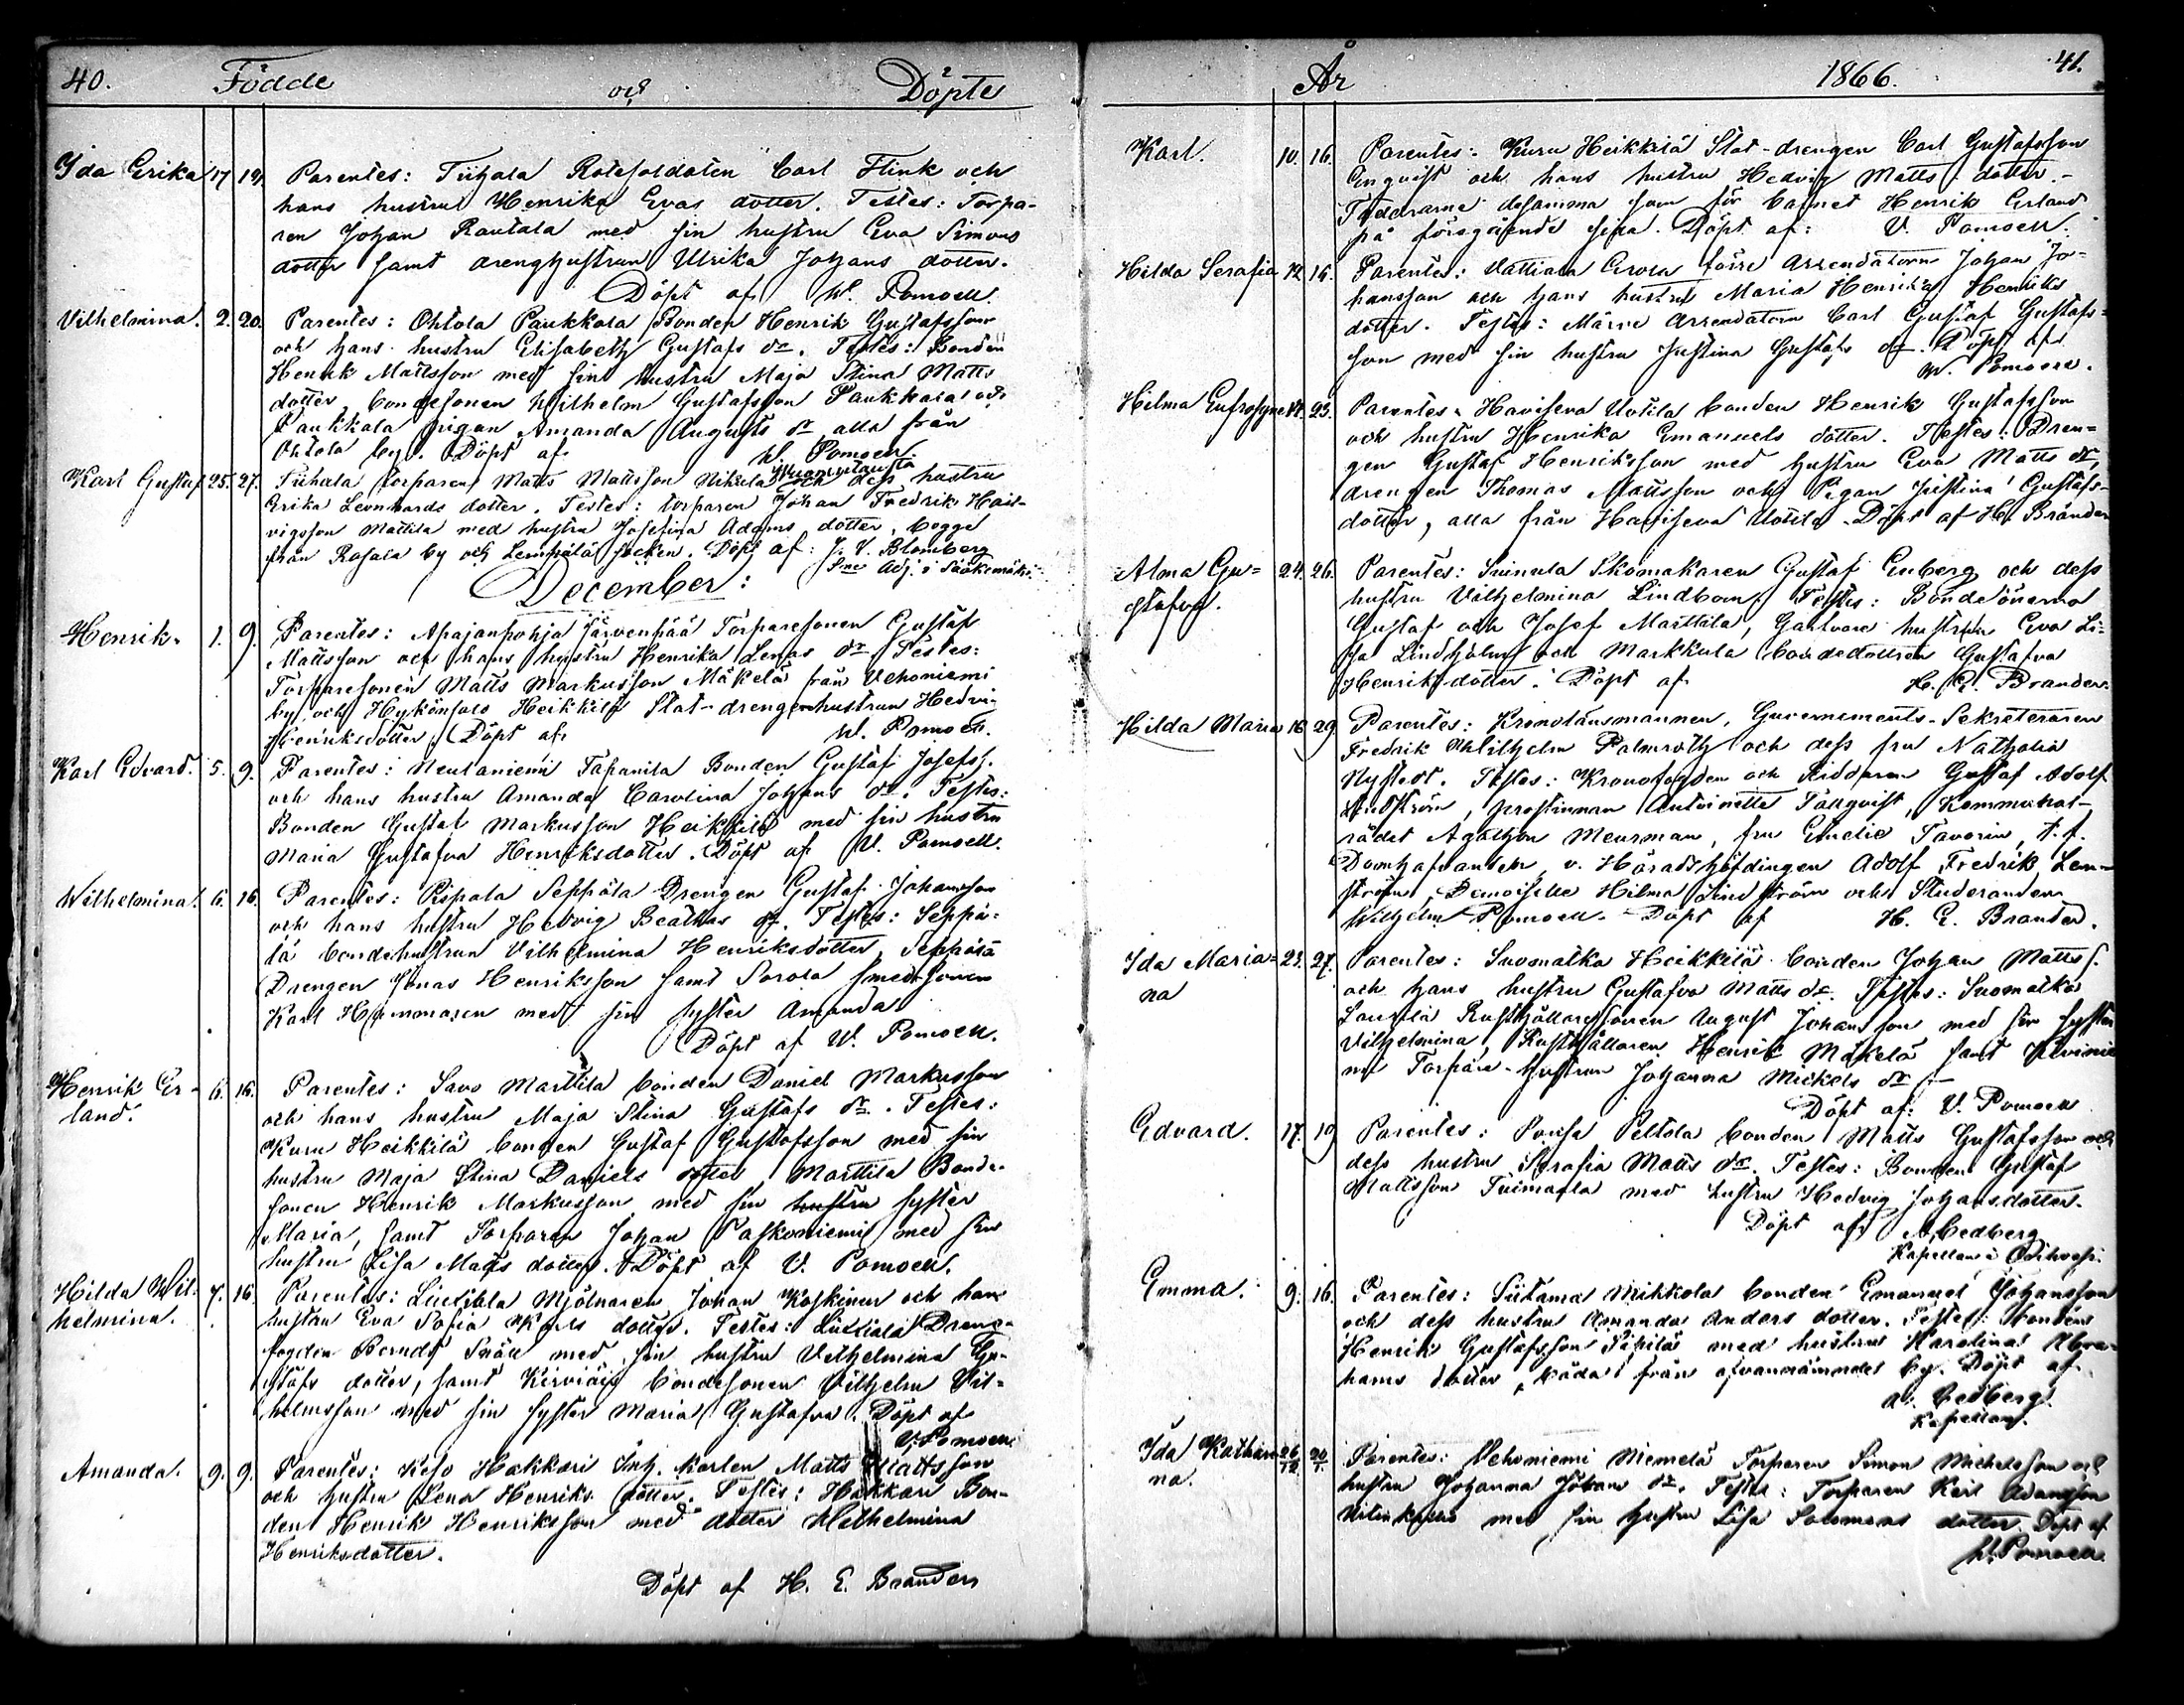 40. Födde och Döpte
Ida Erika 17 19. Parentes: Tiihala Rotesoldaten Carl Flink och
hans hustru Henrika Evas dotter. Testes: Torpa-
ren Johan Rautala med sin hustru Eva Simons
dotter samt drenghustrun Ulrika Johans dotter.
Döpt af W. Pomoell.
Vilhelmina. 2. 20. Parentes: Ohtola Paukkola Bonden Henrik Gustafsson
och hans hustru Elisabeth Gustafs dr. Testes: Bonden
Henrik Mattsson med sin hustru Maja Stina Matts
dotter bondesonen Wilhelm Gustafsson Paukkola och
Paukkala pigan Amanda Augusts dr alla från
Ohtola by. Döpt af W. Pomoell.
Karl Gustaf 25. 27. Tiihala torparen Matts Mattsson Mikkola och dess hustru
Erika Leonhards dotter. Testes: torparen Johan Fredrik Hed-
vigsson Mattila med hustru Josefina Adams dotter, begge
från Rasala by och Lempälä socken. Döpt af: J. V. Blomberg
Sne Adj. i Sääksmäki.
December:
Henrik. 1. 9. Parentes: Apajanpohja Järvenpää Torparesonen Gustaf
Mattsson och hans hustru Henrika Lenas dr Testes:
Torparesonen Matts Markusson Mäkelä från Vehoniemi
by och Hykönsalo Heikkilä Stat-drengenhustrun Hedvig
Henriksdotter. Döpt af W. Pomoell.
Karl Edvard. 5. 9. Parentes: Neulaniemi Tapanila Bonden Gustaf Josefs.
och hans hustru Amanda Carolina Johans dr. Testes:
Bonden Gustaf Markusson Heikkilä med sin hustru
Maria Gustafva Henriksdotter. Döpt af V. Pomoell.
Wilhelmina. 6. 16. Parentes: Pispala Seppälä Drengen Gustaf Johansson
och hans hustru Hedvig Beatas dr. Testes: Seppä-
lä bondehustrun Vilhelmina Henriksdotter, Seppälä
Drengen Jonas Henriksson samt Sorola smedssonen
Karl Hammaren med sin syster Amanda
Döpt af W. Pomoell.
Henrik Er- 6. 16. Parentes: Savo Marttila bonden Daniel Markusson
land. och hans hustru Maja Stina Gustafs dr. Testes:
Kuru Heikkilä bonden Gustaf Gustafsson med sin
hustru Maja Stina Daniels dotter Marttila Bonde-
sonen Henrik Markusson med sin hustru syster
Maria, samt Torparen Johan Paskoniemi med sin
hustru Lisa Matts dotter. Döpt af V. Pomoell.
Hilda Wil- 7. 16. Parentes: Liuttiala Mjölnaren Johan Koskinen och hans
helmina. hustru Eva Sofia Karls dotter. Testes: Liuttiala Dreng-
fogden Berndt Snäll med sin hustru Vilhelmina Gu-
stafs dotter, samt bondesonen Vilhelm Vil-
helmsson med sin syster Maria Gustafva. Döpt af
V. Pomoell.
Amanda. 9. 9. Parentes: Keso Hakkari Inh. karlen Matts Mattsson
och hustru Lena Henriks dotter. Testes: Hakkari Bon-
den Henrik Henriksson med dotter Wilhelmina
Henriksdotter.
Döpt af H. E. Brander
År 1866. 41.
Karl. 10. 16. Parentes: Kuru Heikkilä Stat-drengen Carl Gustafsson
Enqvist och hans hustru Hedvig Matts dotter.-
Faddrarne desamma som för barnet Henrik Erland
på föregående sida. Döpt af: V. Pomoell.
Hilda Serafia 12. 16. Parentes: Vattiala förre Arrendatorn Johan Jo-
hansson och hans hustru Maria Henrika Henriks
dotter. Testes: Märve Arrendatorn Carl Gustaf Gustafs-
son med sin hustru Justina Gustafs dr. Döpt af
W. Pomoell.
Hilma Eufrosyne 17. 23. Parentes: Haviseva Uotila bonden Henrik Gustafsson
och hustru Henrika Emanuels dotter. Testes: Dren-
gen Gustaf Henriksson med hustru Eva Matts dr,
drengen Thomas Mattsson och Pigan Justina Gustafs-
dotter, alla från Haviseva Uotila. Döpt af H. Brander
Alma Gu- 24. 26. Parentes: Suinula Skomakaren Gustaf Enberg och dess
stafva. hustru Vilhelmina Lindbom Testes: Bondesönerna
Gustaf och Josef Marttila, hustrun Eva Li-
sa Lindholm och Markkula bondedottren Gustafva
Henriksdotter. Döpt af H. E. Brander.
Hilda Maria 16 29. Parentes: Kronolänsmannen, Guvernements-Sekreteraren
Fredrik Wilhelm Palmroth och dess fru Nathalia
Nystedt. Testes: Kronofogden och Riddaren Gustaf Adolf
Lindström, prostinnan Antoinetta Tallqvist, Kommunal-
rådet Agathon Meurman, fru Emelie Tavorin, t.f.
Domhafvanden v. Häradshöfdingen Adolf Fredrik Len-
ström, Demoiselle Hilma Lindström och Studeranden
Wilhelm Pomoell. Döpt af H. E. Brander.
Ida Maria- 23. 27. Parentes: Suomatka Heikkilä bonden Johan Matts s.
na och hans hustru Gustafva Matts dr. Testes: Suomatka
Laurila Rusthållaresonen August Johansson med sin syster
Vilhelmina, Rusthållaren Henrik Mäkelä samt
Torpare-hustrun Johanna Mickels dr.-
Döpt af: V. Pomoell
Edvard. 17. 19 Parentes: Ponsa Peltola bonden Matts Gustafsson och
dess hustru Serafia Matts dr. Testes: Bonden Gustaf
Mattsson Tuimaala med hustru Hedvig Johansdotter.
Döpt af A. Cedberg
Kapellan i Orihvesi.
Emma. 9. 16. Parentes: Siitama Mikkola bonden Emanuel Johansson
och dess hustru Amanda Anders dotter. Testes: bonden
Henrik Gustafsson Päkilä med hustru Karolina Abra-
hams dotter, båda från ofvannämnde by. Döpt af
A. Cedberg.
Kapellan.
Ida Kathari- 26/12. 20/1. Parentes: Vehoniemi Niemelä Torparen Simon Michelsson och
na. hustru Johanna Johans dr. Testes: Torparen Karl Adamsson
med sin hustru Lisa Salomons dotter. Döpt af
W. Pomoell.